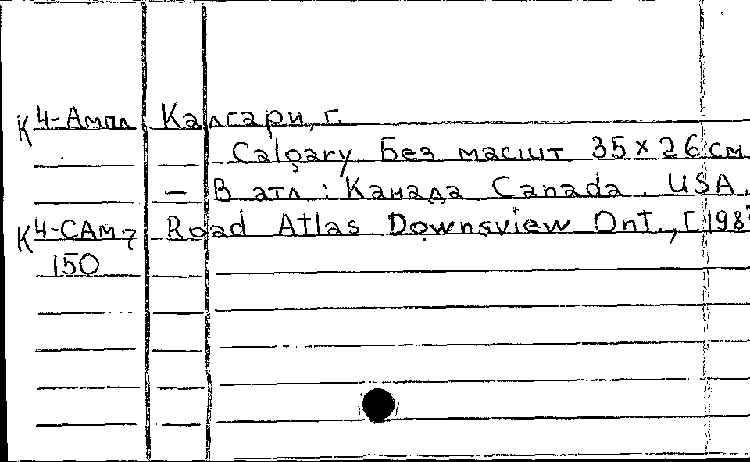 К 4-Ампл Калгари, г.
Calgary Без масшт 35 х 26 см
— В атл : Канада Canada. USA.
К 4-САм7 Road Atlas Downsview Ont., [198
150